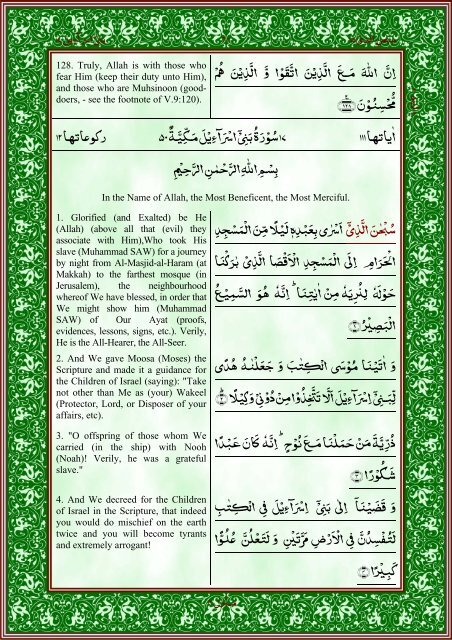 128. Truly, Allah is with those who
fear Him (keep their duty unto Him),
and those who are Muhsinoon (good-
doers, - see the footnote of V.9:120).
اِنَّ اللّٰهَ مَعَ الَّذِيْنَ اتَّقَوْا وَّ الَّذِيْنَ هُمْ
مُّحْسِنُوْنَ ۝۱۲۸
اٰياتها ۱۱۱
۱۷ سُوْرَةُ بَنِيْٓ اِسْرَآءِيْلَ مَكِّيَّةٌ ۵۰
ركوعاتها ۱۲
بِسْمِ اللّٰهِ الرَّحْمٰنِ الرَّحِيْمِ
In the Name of Allah, the Most Beneficent, the Most Merciful.
1. Glorified (and Exalted) be He
(Allah) (above all that (evil) they
associate with Him),Who took His
slave (Muhammad SAW) for a journey
by night from Al-Masjid-al-Haram (at
Makkah) to the farthest mosque (in
Jerusalem), the neighbourhood
whereof We have blessed, in order that
We might show him (Muhammad
SAW) of Our Ayat (proofs,
evidences, lessons, signs, etc.). Verily,
He is the All-Hearer, the All-Seer.
سُبْحٰنَ الَّذِيْٓ اَسْرٰى بِعَبْدِهٖ لَيْلًا مِّنَ الْمَسْجِدِ
الْحَرَامِ اِلَى الْمَسْجِدِ الْاَقْصَا الَّذِيْ بٰرَكْنَا
حَوْلَهٗ لِنُرِيَهٗ مِنْ اٰيٰتِنَا ؕ اِنَّهٗ هُوَ السَّمِيْعُ
الْبَصِيْرُ ۝۱
2. And We gave Moosa (Moses) the
Scripture and made it a guidance for
the Children of Israel (saying): "Take
not other than Me as (your) Wakeel
(Protector, Lord, or Disposer of your
affairs, etc).
وَ اٰتَيْنَا مُوْسَى الْكِتٰبَ وَ جَعَلْنٰهُ هُدًى
لِّبَنِيْٓ اِسْرَآءِيْلَ اَلَّا تَتَّخِذُوْا مِنْ دُوْنِيْ وَكِيْلًا ۝۲
3. "O offspring of those whom We
carried (in the ship) with Nooh
(Noah)! Verily, he was a grateful
slave."
ذُرِّيَّةَ مَنْ حَمَلْنَا مَعَ نُوْحٍ ؕ اِنَّهٗ كَانَ عَبْدًا
شَكُوْرًا ۝۳
4. And We decreed for the Children
of Israel in the Scripture, that indeed
you would do mischief on the earth
twice and you will become tyrants
and extremely arrogant!
وَ قَضَيْنَآ اِلٰى بَنِيْٓ اِسْرَآءِيْلَ فِي الْكِتٰبِ
لَتُفْسِدُنَّ فِي الْاَرْضِ مَرَّتَيْنِ وَ لَتَعْلُنَّ عُلُوًّا
كَبِيْرًا ۝۴